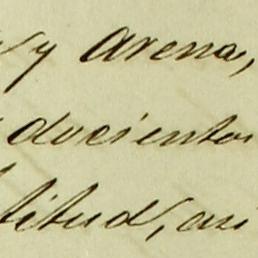 y arena,
docientos
titud, asi